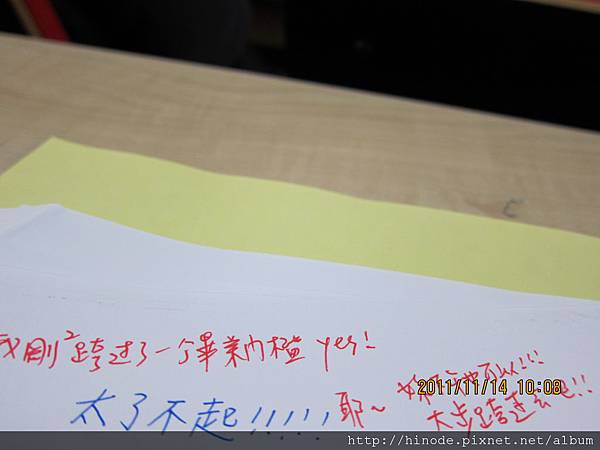 我剛²跨过了一个畢業门檻 yes!
太了不起!!!!! 耶~
也可以!!!
大步跨過去吧!!
2011/11/14 10:08
http://hinode.pixnet.net/album